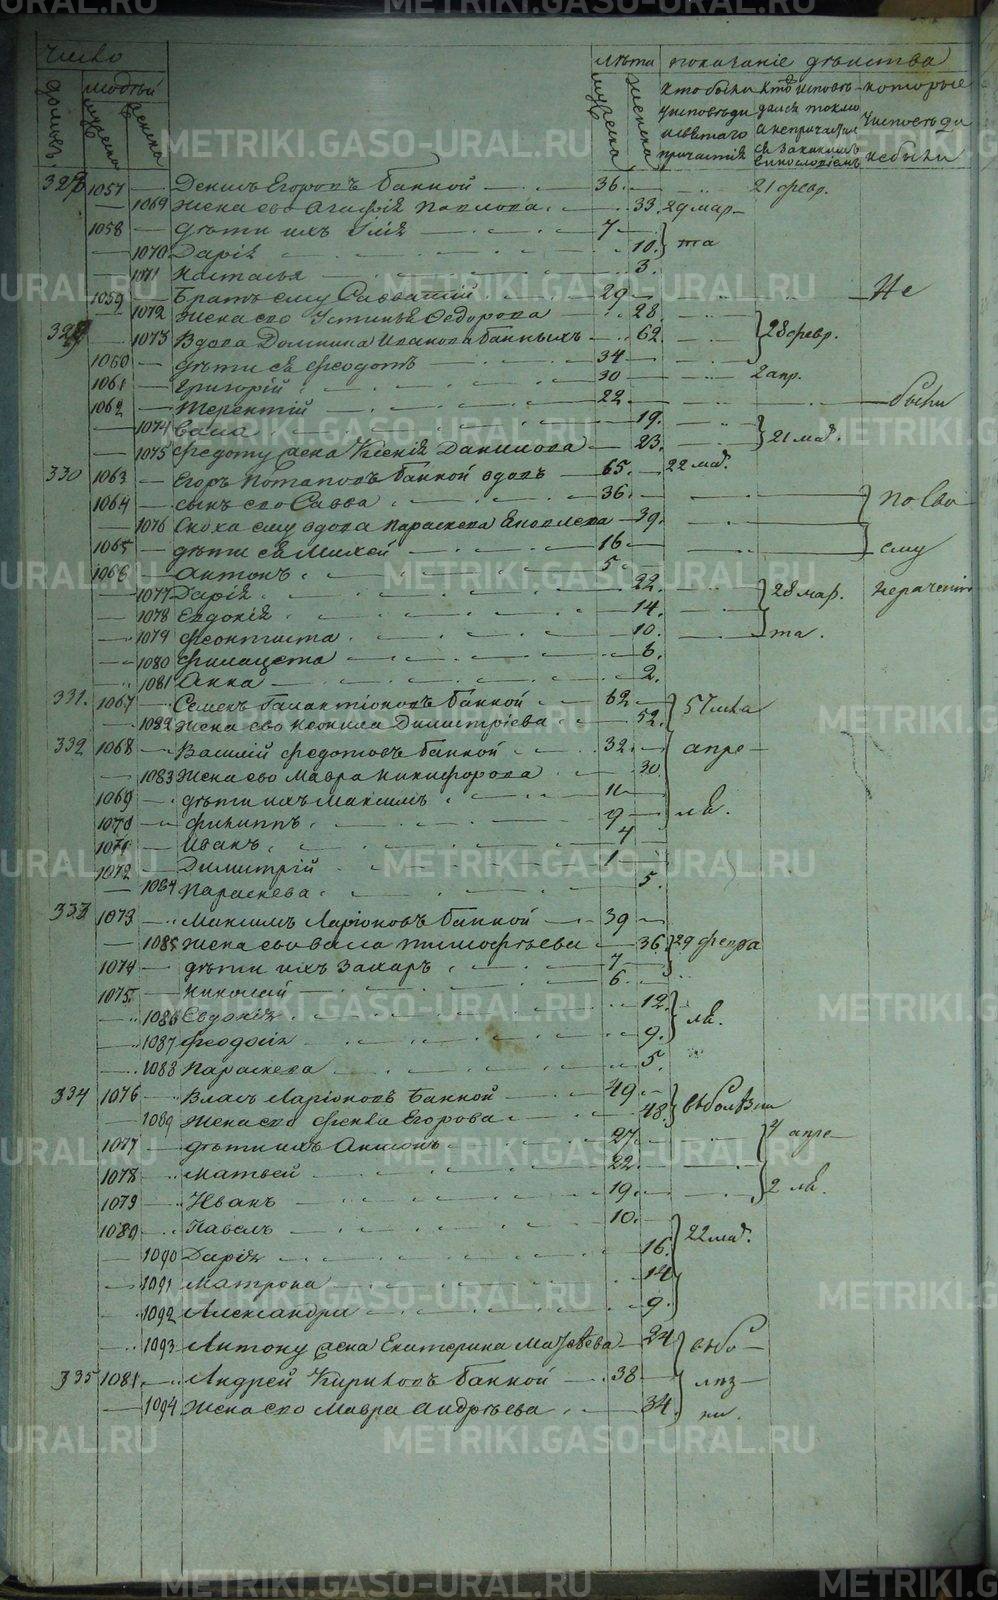 число лѣта показаніе дѣйства
домовъ людѣй мужеска женска мужеска женска кто были у исповѣди и святаго причастія кто исповѣдался токмо а не причастился за какимъ винословіемъ которые у исповѣди небыли
328 1057 Денисъ Егоровъ Банной 36 21 февр.
1069 жена ево Агафія Павлова 33. 29 мар
1058 дѣти ихъ Илія 7
1070 Дарія 10. та
1071 Настасья 3.
1059 Братъ ему Савватій 29 Не
1072 жена ево Устинья Федорова 28.
329 1073 Вдова Домнина Иванова Банныхъ 62. 28 февр.
1060 дѣти ея Феодотъ 34
1061 Григорій 30 2 апр.
1062 Терентій 22 были
1074 Васса 19.
1075 Федоту жена Ксенія Данилова 23. 21 мар.
330 1063 Егоръ Потаповъ Банной вдовъ 65. 22 мар.
1064 сынъ ево Савва 36. по сво
1076 Сноха ему вдова Параскева Яковлева 39.
1065 дѣти ея Михей 16 ему
1066 Антонъ 5
1077 Дарія 22. 28 мар. нерачению
1078 Евдокія 14.
1079 Феоктиста 10. та.
1080 Филицета 6.
1081 Анна 2.
331. 1067 Семенъ Галактіоновъ Банной 62 5 числа
1082 жена ево Неонила Димитріева 52.
332 1068 Василій Федотовъ Банной 32. апре
1083 жена ево Мавра Никифорова 30.
1069 дѣти ихъ Максимъ 11
1070 Филиппъ 9 лв.
1071 Иванъ 4
1072 Димитрій 1
1084 Параскева 5.
333 1073 Максимъ Ларіоновъ Банной 39
1085 жена ево Васса Тимофѣева 36. 29 февра
1074 дѣти ихъ Захаръ 7
1075 Николай 6.
1086 Евдокія 12. лв.
1087 Феодосія 9.
1088 Параскева 5.
334 1076 Власъ Ларіоновъ Банной 49.
1089 жена ево Фекла Егорова 48. въ болѣзни
1077 дѣти ихъ Антонъ 27. 4 апре
1078 Матвей 22.
1079 Иванъ 19. 2 лв.
1080 Павелъ 10.
1090 Дарія 16. 22 мар.
1091 Матрона 14
1092 Александра 9.
1093 Антону жена Екатерина Матвѣева 24 въ бо
335 1081. Андрей Кириловъ Банной 38 лѣз
1094 жена ево Мавра Андрѣева 34. ни.
METRIKI.GASO-URAL.RU